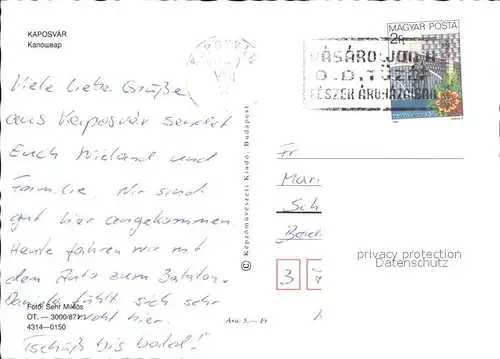 KAPOSVÁR
Капошвар
MAGYAR POSTA
2Ft
VÁSÁROLJON A
D.D. TÜZÉP
FÉSZEK ÁRUHÁZAIBAN
Viele liebe Grüße
aus Kaposvár sendet
Euch Wieland und
Familie. Wir sind
gut hier angekommen
Heute fahren wir mit
dem Auto zum Balaton.
Daniela fühlt sich sehr
wohl hier.
Tschüß bis bald!
Foto: Sehr Miklós
OT. — 3000/871
4314—0150
Ára: 5,— Ft
© Képzőművészeti Kiadó, Budapest
Fr
Mari
Sch
3 7
privacy protection
Datenschutz